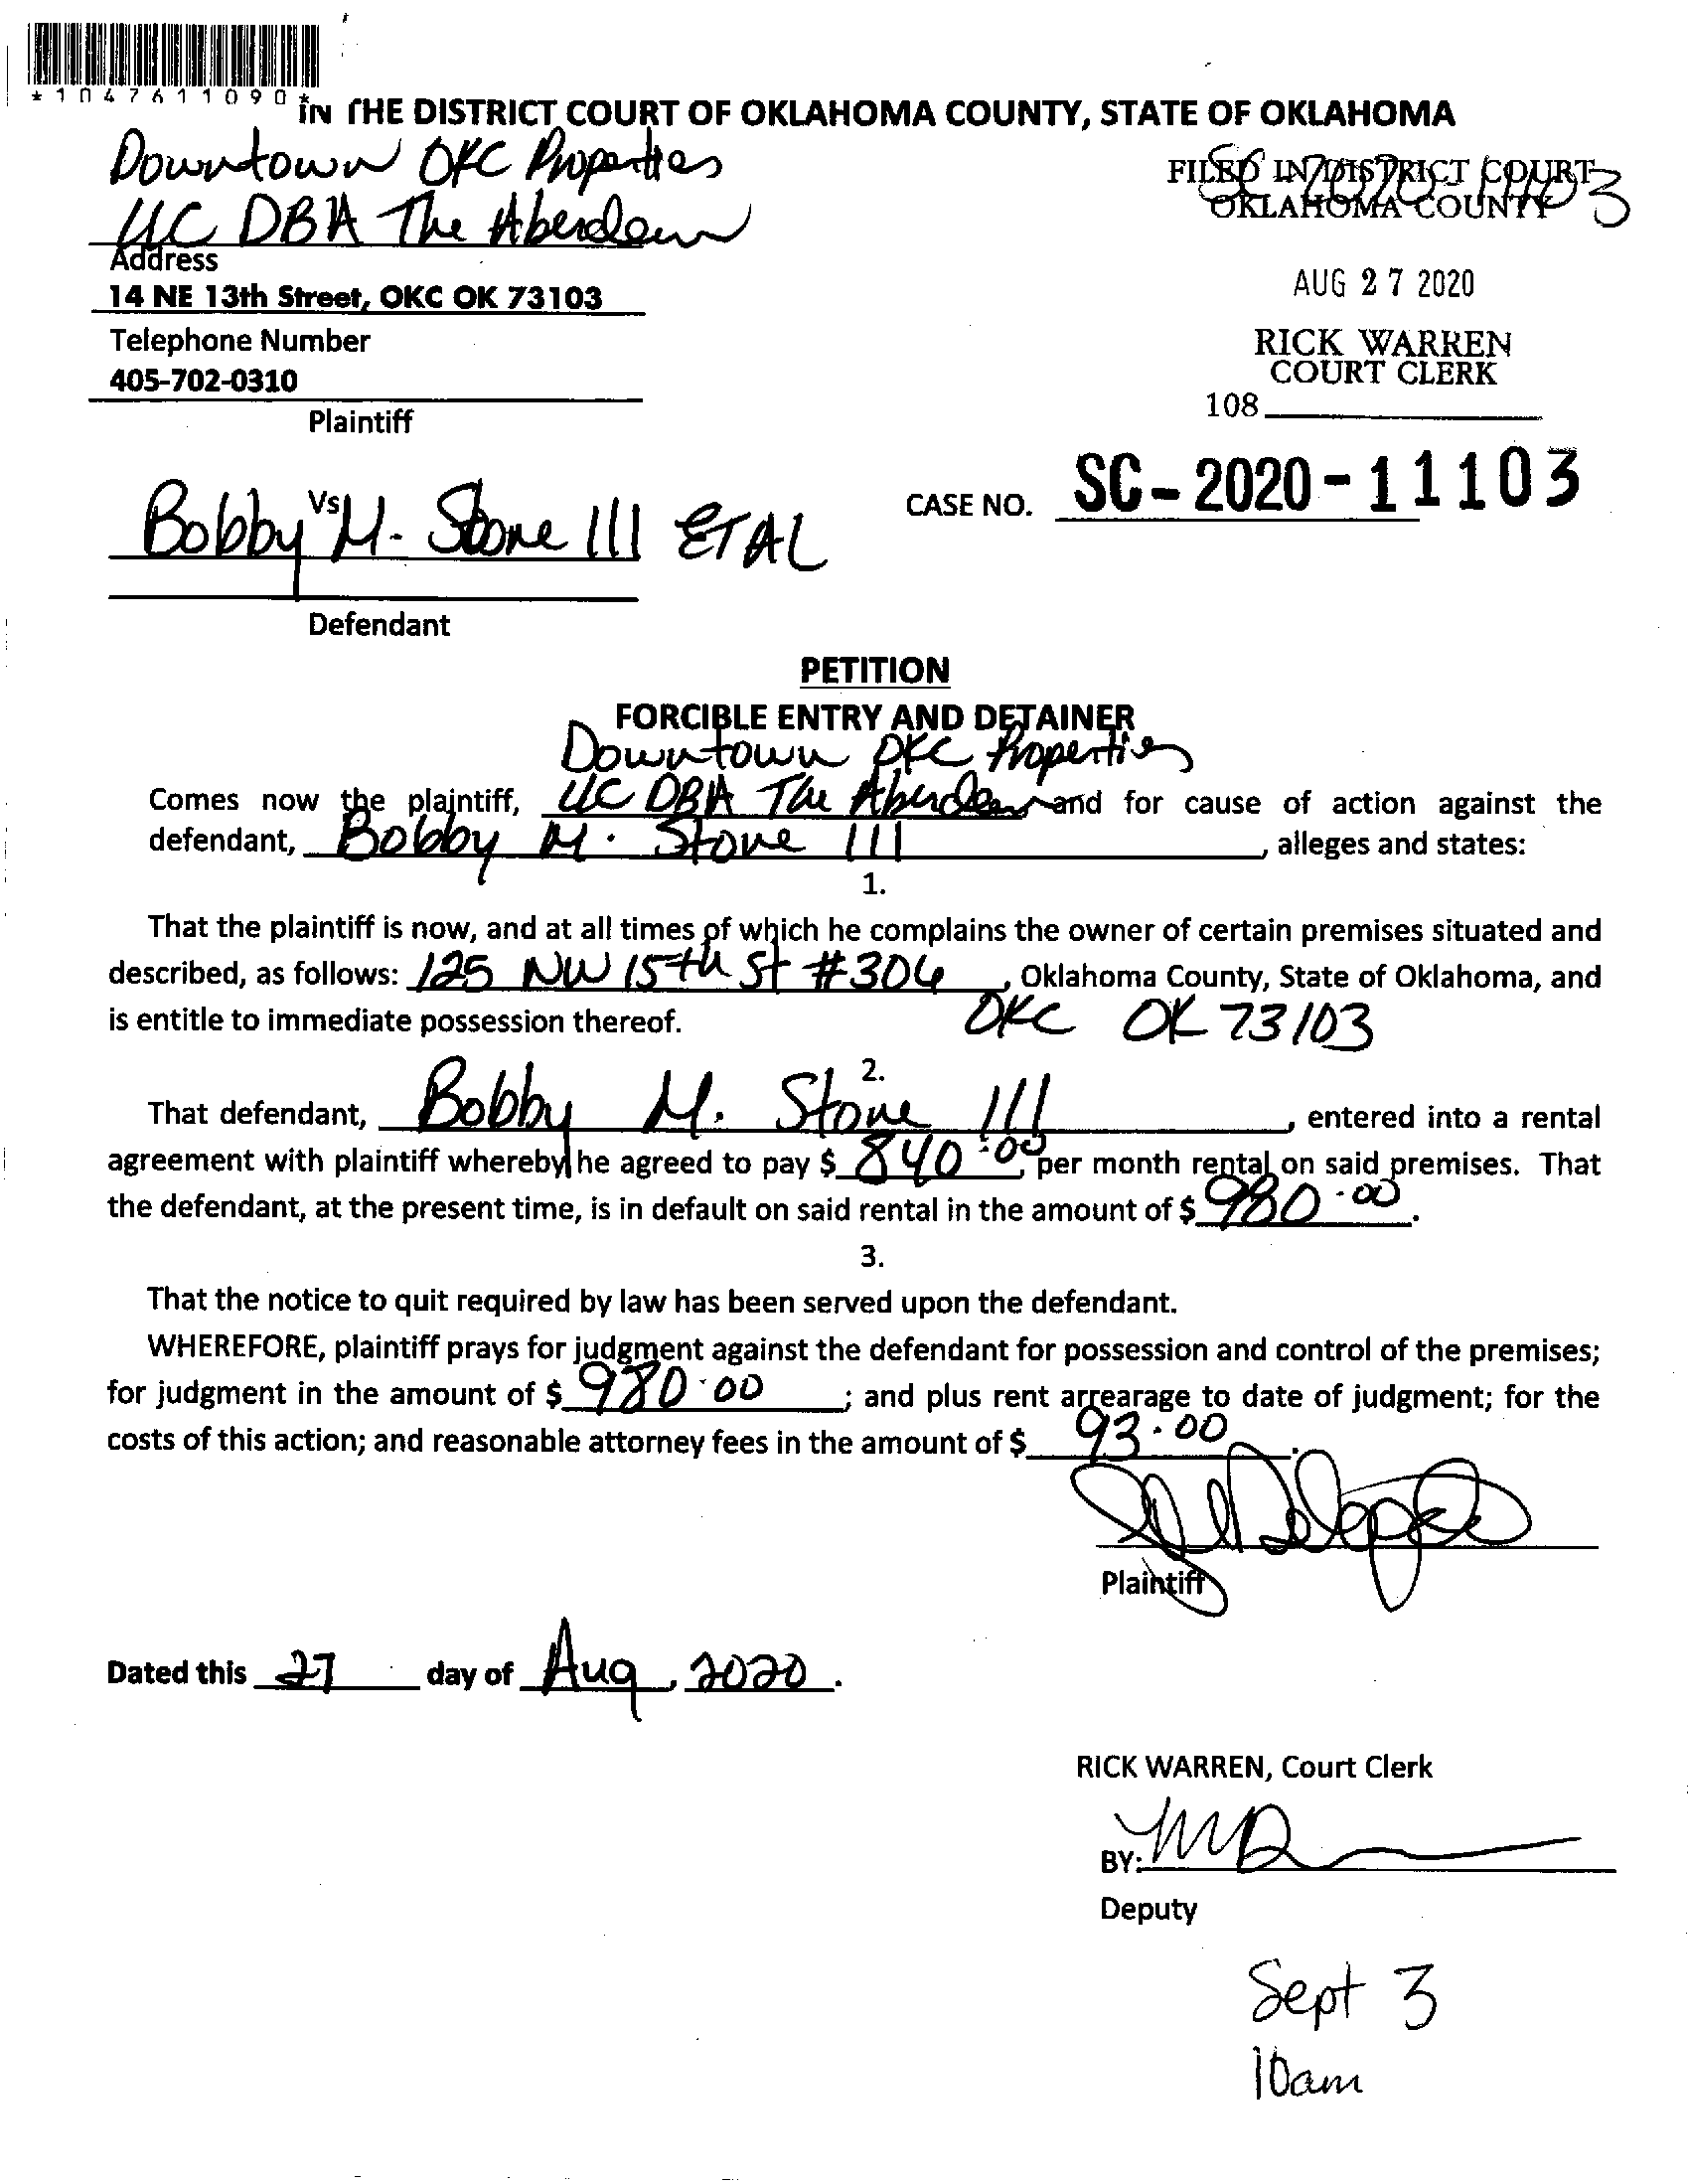 *1047611090*
IN THE DISTRICT COURT OF OKLAHOMA COUNTY, STATE OF OKLAHOMA
Downtown OKC Properties
LLC DBA The Aberdeen
SC 2020-11103
FILED IN DISTRICT COURT
OKLAHOMA COUNTY
Address
14 NE 13th Street, OKC OK 73103
AUG 27 2020
Telephone Number
405-702-0310
RICK WARREN
COURT CLERK
108
Plaintiff
Vs
Bobby M. Stone III ET AL
CASE NO. SC-2020-11103
Defendant
PETITION
FORCIBLE ENTRY AND DETAINER
Downtown OKC Properties
Comes now the plaintiff, LLC DBA The Aberdeen and for cause of action against the
defendant, Bobby M. Stone III, alleges and states:
1.
That the plaintiff is now, and at all times of which he complains the owner of certain premises situated and
described, as follows: 125 NW 15th St #306, Oklahoma County, State of Oklahoma, and
is entitle to immediate possession thereof. OKC OK 73103
2.
That defendant, Bobby M. Stone III, entered into a rental
agreement with plaintiff whereby he agreed to pay $ 840.00, per month rental on said premises. That
the defendant, at the present time, is in default on said rental in the amount of $ 980.00.
3.
That the notice to quit required by law has been served upon the defendant.
WHEREFORE, plaintiff prays for judgment against the defendant for possession and control of the premises;
for judgment in the amount of $ 980.00; and plus rent arrearage to date of judgment; for the
costs of this action; and reasonable attorney fees in the amount of $ 93.00.
Plaintiff
Dated this 27 day of Aug, 2020.
RICK WARREN, Court Clerk
BY:
Deputy
Sept 3
10am